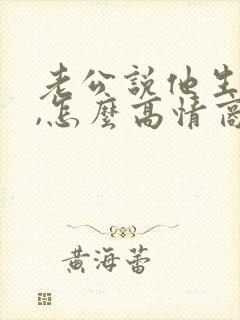 老公說他生
,怎麼高情商
黃海蕾